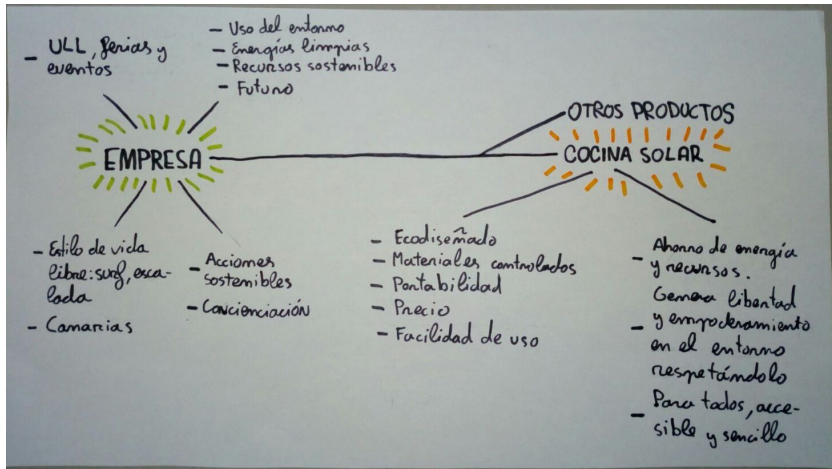 - ULL, ferias y
eventos
- Uso del entorno
- Energías limpias
- Recursos sostenibles
- Futuro
OTROS PRODUCTOS
EMPRESA
COCINA SOLAR
- Estilo de vida
libre: surf, esca-
lada
- Canarias
- Acciones
sostenibles
- Concienciación
- Ecodiseñado
- Materiales controlados
- Portabilidad
- Precio
- Facilidad de uso
- Ahorro de energía
y recursos.
- Genera libertad
y empoderamiento
en el entorno
respetándolo
- Para todos, acce-
sible y sencillo